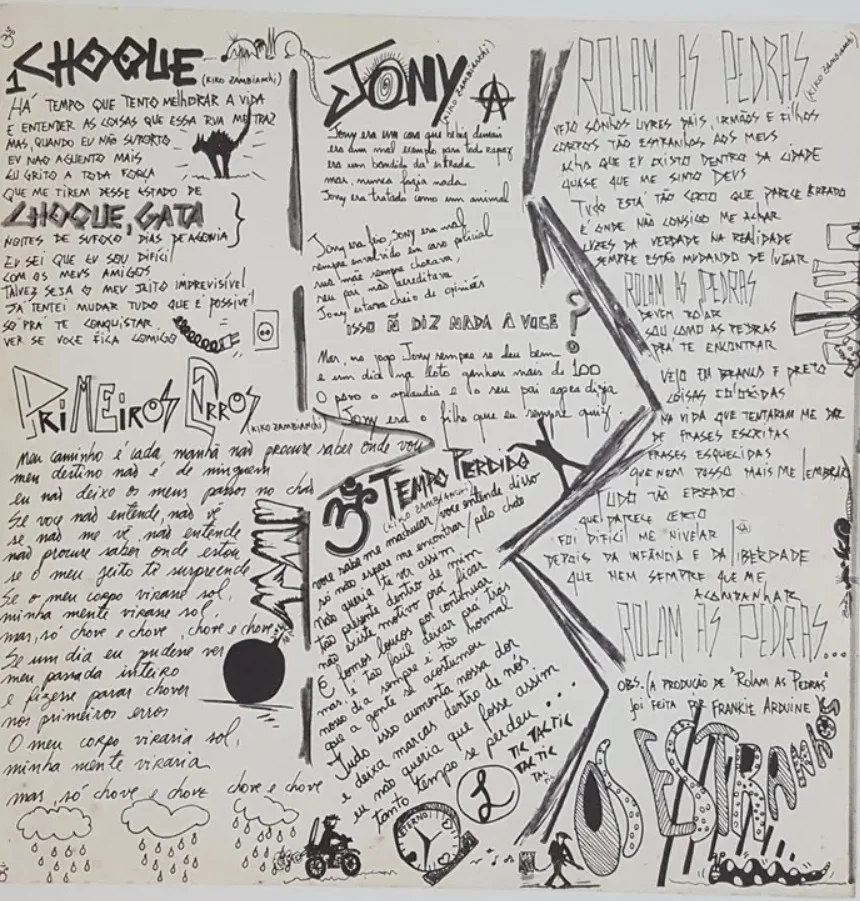 CHOQUE
(KIKO ZAMBIANCHI)
HÁ TEMPO QUE TENTO MELHORAR A VIDA
E ENTENDER AS COISAS QUE ESSA RUA ME TRAZ
MAS, QUANDO EU NÃO SUPORTO
EU NÃO AGUENTO MAIS
EU GRITO A TODA FORÇA
QUE ME TIREM DESSE ESTADO DE
CHOQUE, GATA
NOITES DE SUFOCO DIAS DE AGONIA
EU SEI QUE EU SOU DIFÍCIL
COM OS MEUS AMIGOS
TALVEZ SEJA O MEU JEITO IMPREVISÍVEL
JÁ TENTEI MUDAR TUDO QUE É POSSÍVEL
SÓ PRÁ TE CONQUISTAR
VER SE VOCÊ FICA COMIGO
PRIMEIROS ERROS
(KIKO ZAMBIANCHI)
Meu caminho é cada manhã não procure saber onde vou
meu destino não é de ninguém
eu não deixo os meus passos no chão
Se você não entende, não vê
se não me vê, não entende
não procure saber onde estou
se o meu jeito te surpreende
Se o meu corpo virasse sol,
minha mente virasse sol,
mas, só chove e chove, chove e chove
Se um dia eu pudesse ver
meu passado inteiro
e fizesse parar chover
nos primeiros erros
O meu corpo viraria sol,
minha mente viraria
mas, só chove e chove chove e chove
JONY
(KIKO ZAMBIANCHI)
A
Jony era um cara que bebia demais
era um mal exemplo para todo rapaz
era um bandido da estrada
mas, nunca fazia nada
Jony era tratado como um animal
Jony era feio, Jony era mal
sempre envolvido em caso policial
sua mãe sempre chorava,
seu pai não acreditava
Jony estava cheio de opiniões
ISSO Ñ DIZ NADA À VOCE?
Mas, no jogo Jony sempre se deu bem
e um dia na loto ganhou mais de 100
O povo o aplaudia e o seu pai agora dizia
Jony era o filho que eu sempre quiz.
TEMPO PERDIDO
(KIKO ZAMBIANCHI)
você sabe me machucar / você entende disso
só não espere me encontrar / pelo chão
Não queria te ver assim
tão presente dentro de mim
não existe motivo prá ficar
É somos loucos por continuar
mas, é tão fácil deixar prá trás
nosso dia sempre é tão normal
que a gente se acostumou
Tudo isso aumenta nossa dor
e deixa marcas dentro de nós
eu não queria que fosse assim
tanto tempo se perdeu...
TIC TAC TIC
TAC TIC
TAC
ETERNO
ROLAM AS PEDRAS
(KIKO ZAMBIANCHI)
VEJO SONHOS LIVRES PAIS, IRMÃOS E FILHOS
CORPOS TÃO ESTRANHOS AOS MEUS
ACHO QUE EU EXISTO DENTRO DA CIDADE
QUASE QUE ME SINTO DEUS
TUDO ESTÁ TÃO CERTO QUE PARECE ERRADO
É ONDE NÃO CONSIGO ME ACHAR
LUZES DA VERDADE NA REALIDADE
SEMPRE ESTÃO MUDANDO DE LUGAR
ROLAM AS PEDRAS
DEVEM ROLAR
SOU COMO AS PEDRAS
PRÁ TE ENCONTRAR
VEJO EM BRANCO E PRETO
COISAS COLORIDAS
NA VIDA QUE TENTARAM ME DAR
DE FRASES ESCRITAS
FRASES ESQUECIDAS
QUE NEM POSSO MAIS ME LEMBRAR
TUDO TÃO ERRADO
QUE PARECE CERTO
FOI DIFÍCIL ME NIVELAR
DEPOIS DA INFÂNCIA E DA LIBERDADE
QUE NEM SEMPRE QUE ME
ACOMPANHAR
ROLAM AS PEDRAS...
OBS. (A PRODUÇÃO DE "ROLAM AS PEDRAS"
foi FEITA POR FRANKIE ARDUINE
OS ESTRANHOS